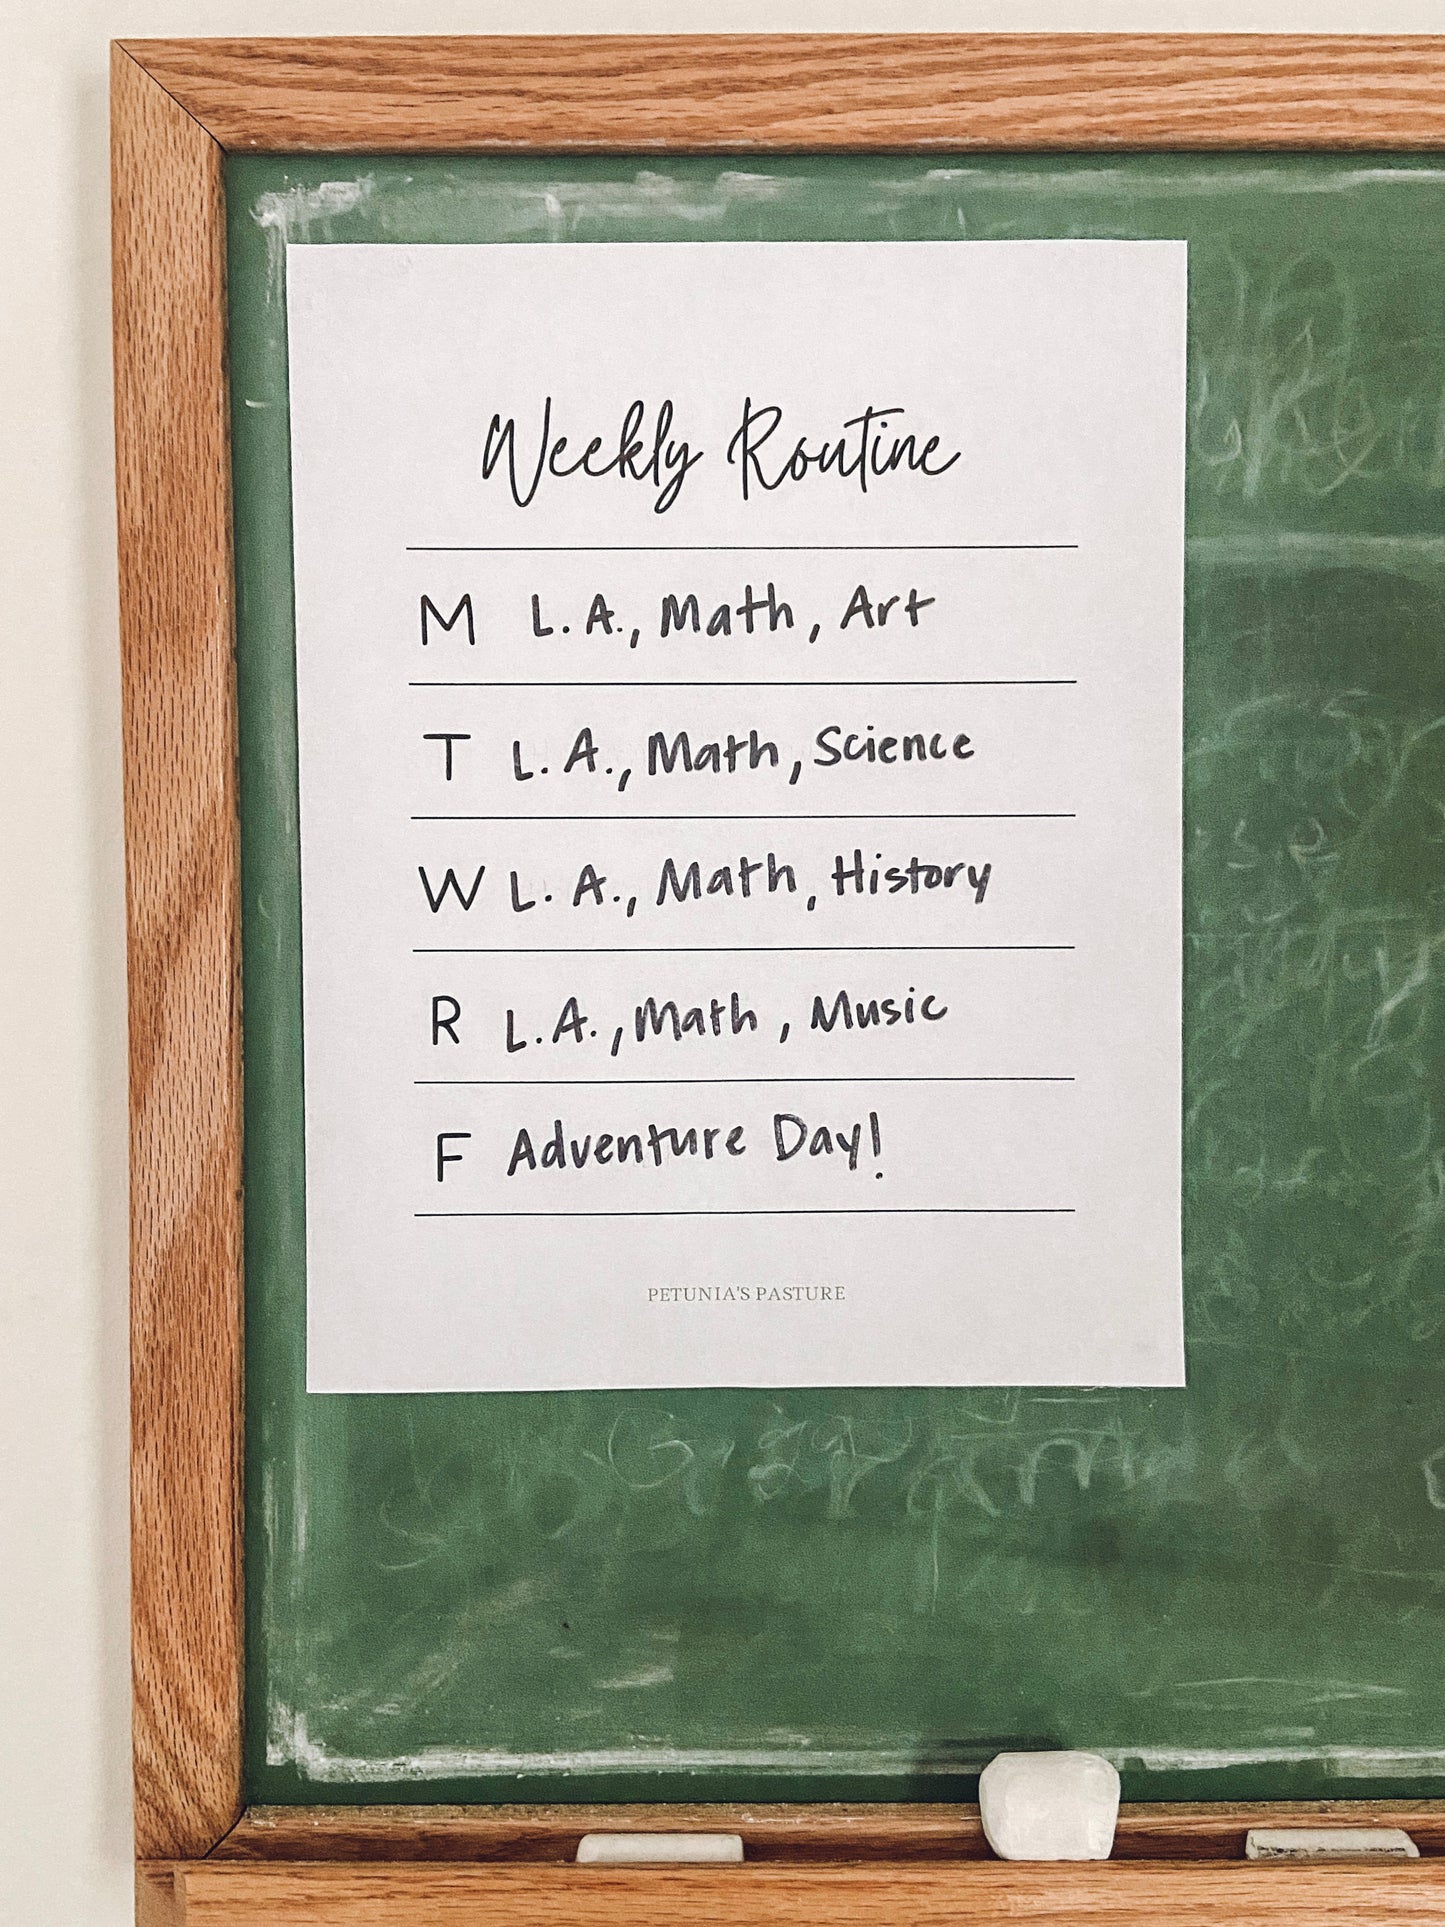 Weekly Routine
M L.A., Math, Art
T L.A., Math, Science
W L.A., Math, History
R L.A., Math, Music
F Adventure Day!
PETUNIA'S PASTURE